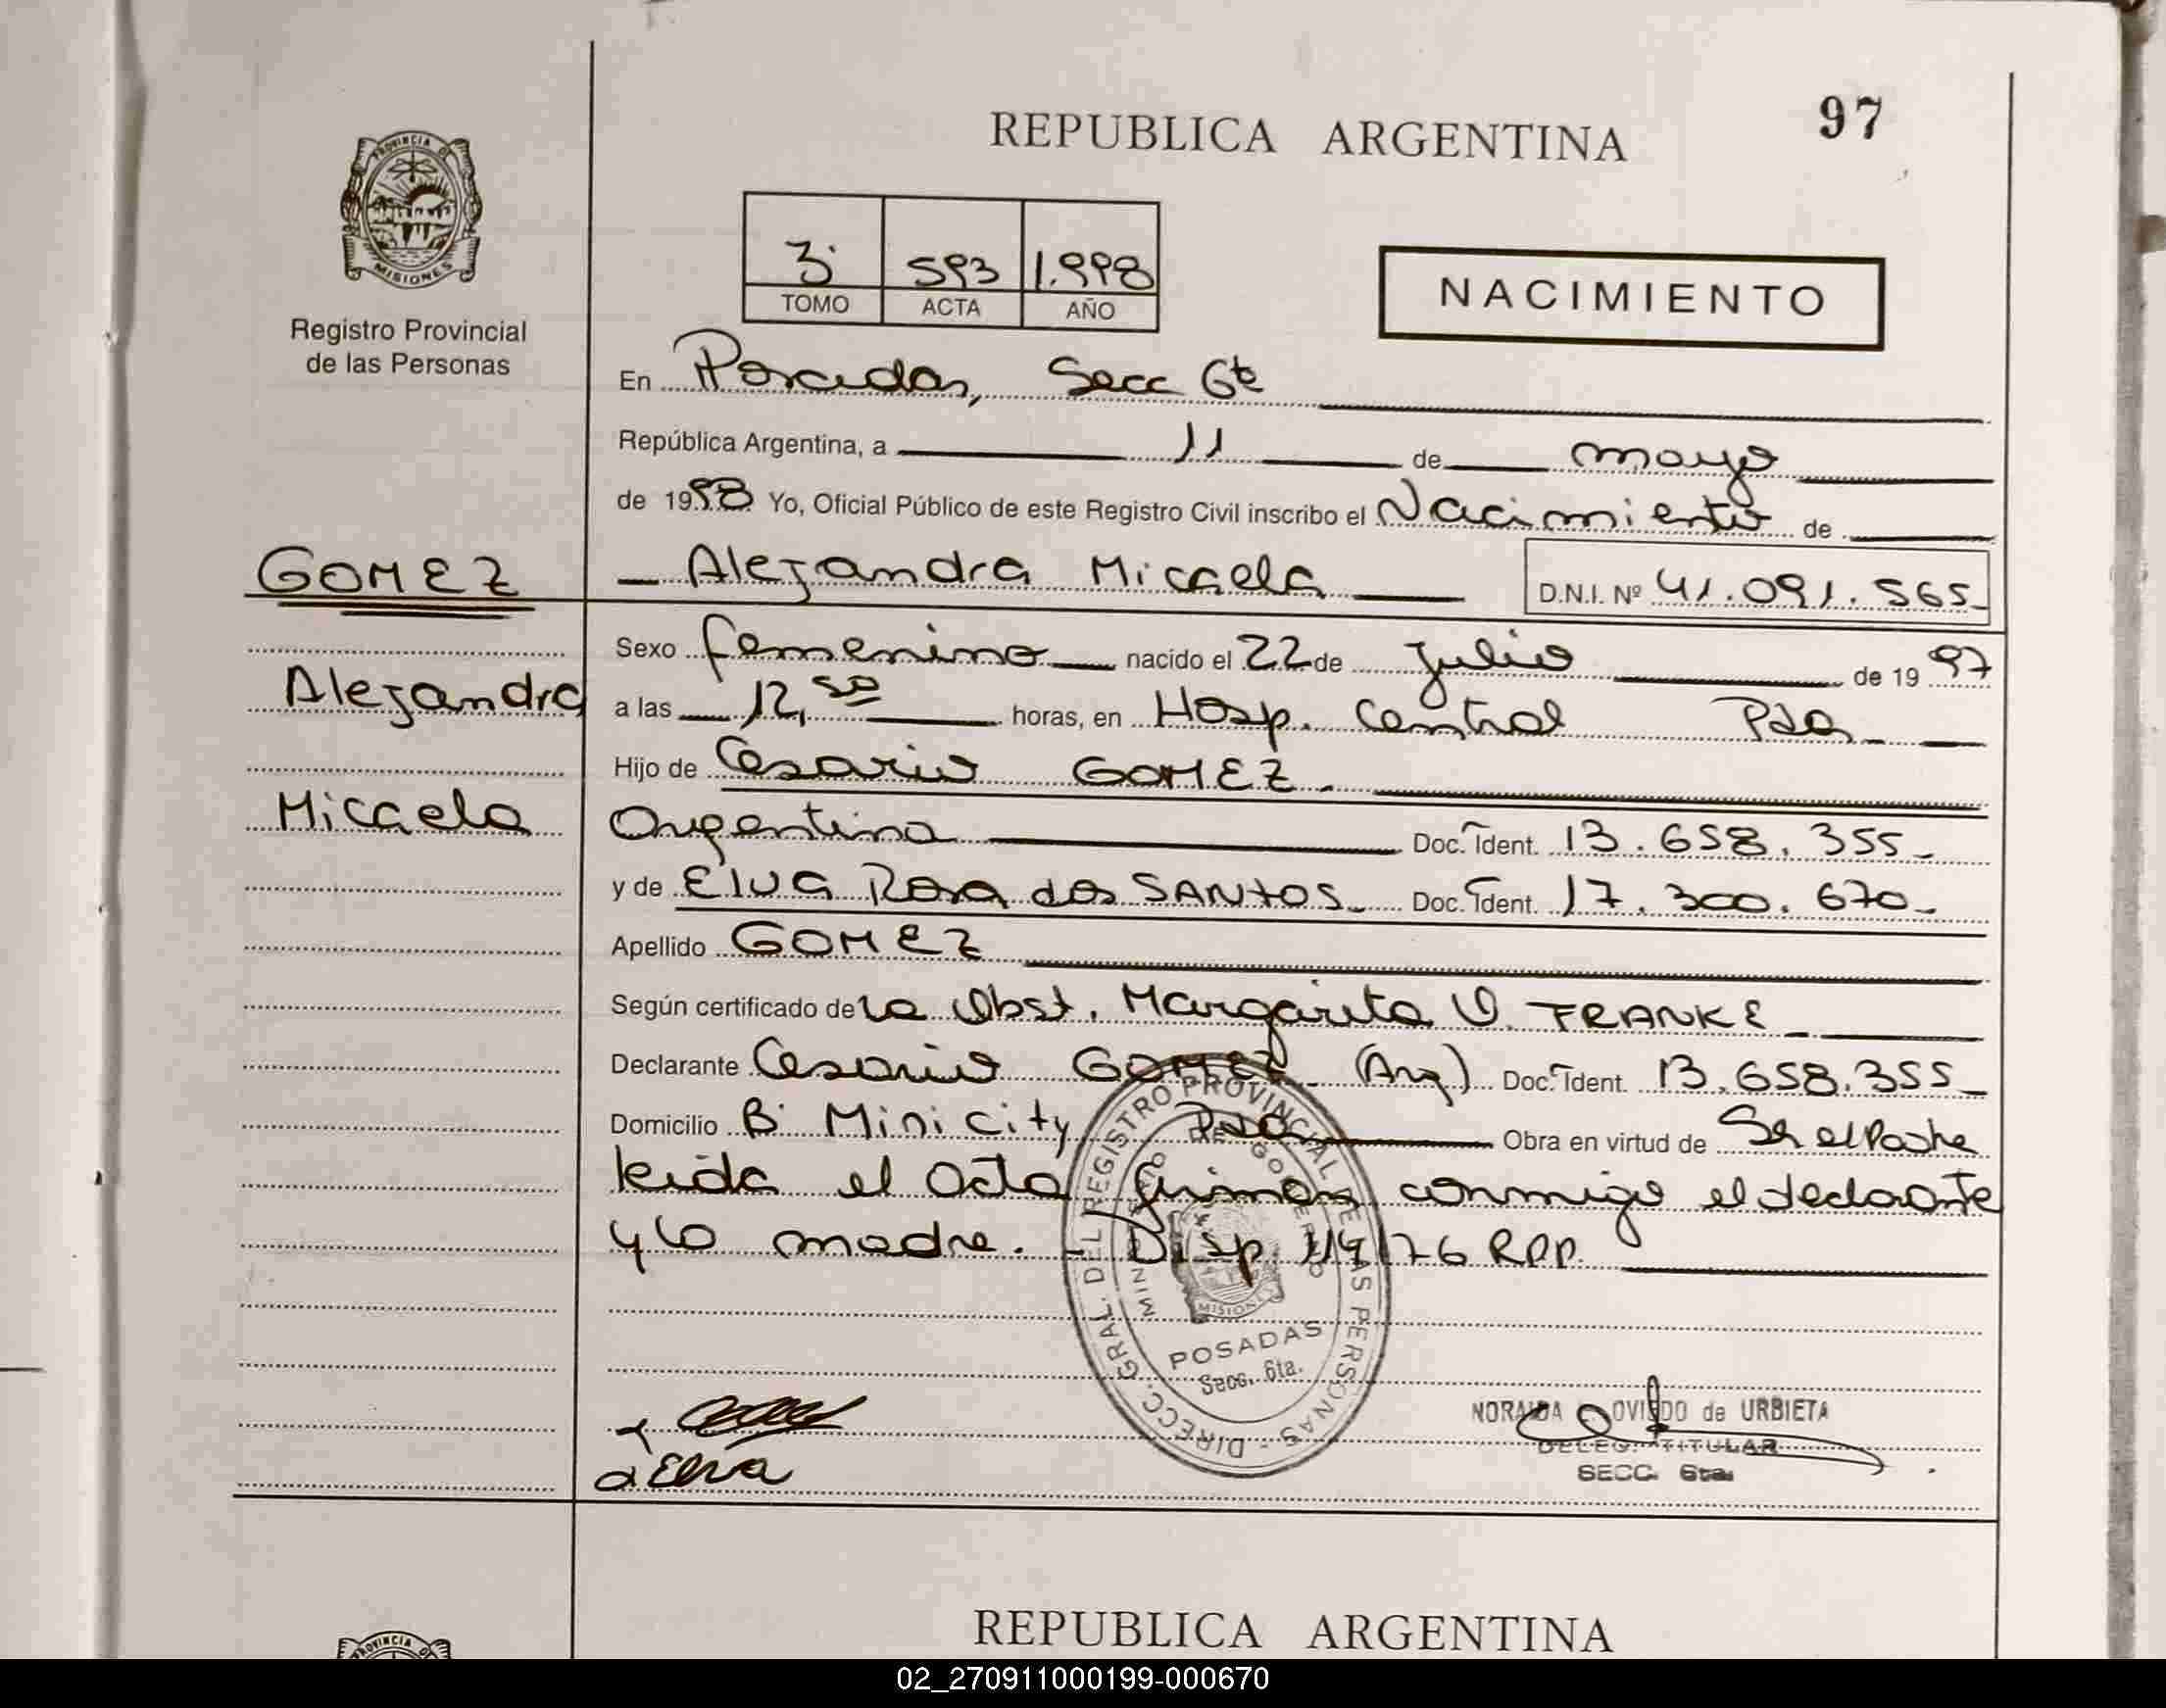 97
REPUBLICA ARGENTINA
PROVINCIA DE
MISIONES
Registro Provincial
de las Personas
3° 593 1.998
TOMO ACTA AÑO
NACIMIENTO
En Posadas, Secc 6ta
República Argentina, a 11 de mayo
de 1998 Yo, Oficial Público de este Registro Civil inscribo el Nacimiento de
GOMEZ Alejandra Micaela D.N.I. Nº 41.091.565-
Sexo femenino nacido el 22 de Julio de 1997
Alejandra a las 12,50 horas, en Hosp. Central Pdas
Hijo de Cesario GOMEZ.
Micaela Argentina Doc. Ident. 13.658.355-
y de Elva Rosa dos SANTOS Doc. Ident. 17.300.670-
Apellido GOMEZ
Según certificado de la Obst. Margarita O. FRANKE
Declarante Cesario GOMEZ (Arg) Doc. Ident. 13.658.355-
Domicilio B° Mini City Pdas Obra en virtud de Ser el Padre
leida el acta firman conmigo el declarante
y la madre. - Disp. 114/76 RPP.
DIRECC. GRAL. DEL REGISTRO PROVINCIAL DE LAS PERSONAS
DE GOBIERNO
MISIONES
POSADAS
Secc. 6ta.
Elva
NORAIDA OVIEDO de URBIETA
DELEG. TITULAR
SECC. 6ta.
REPUBLICA ARGENTINA
PROVINCIA DE
02_270911000199-000670